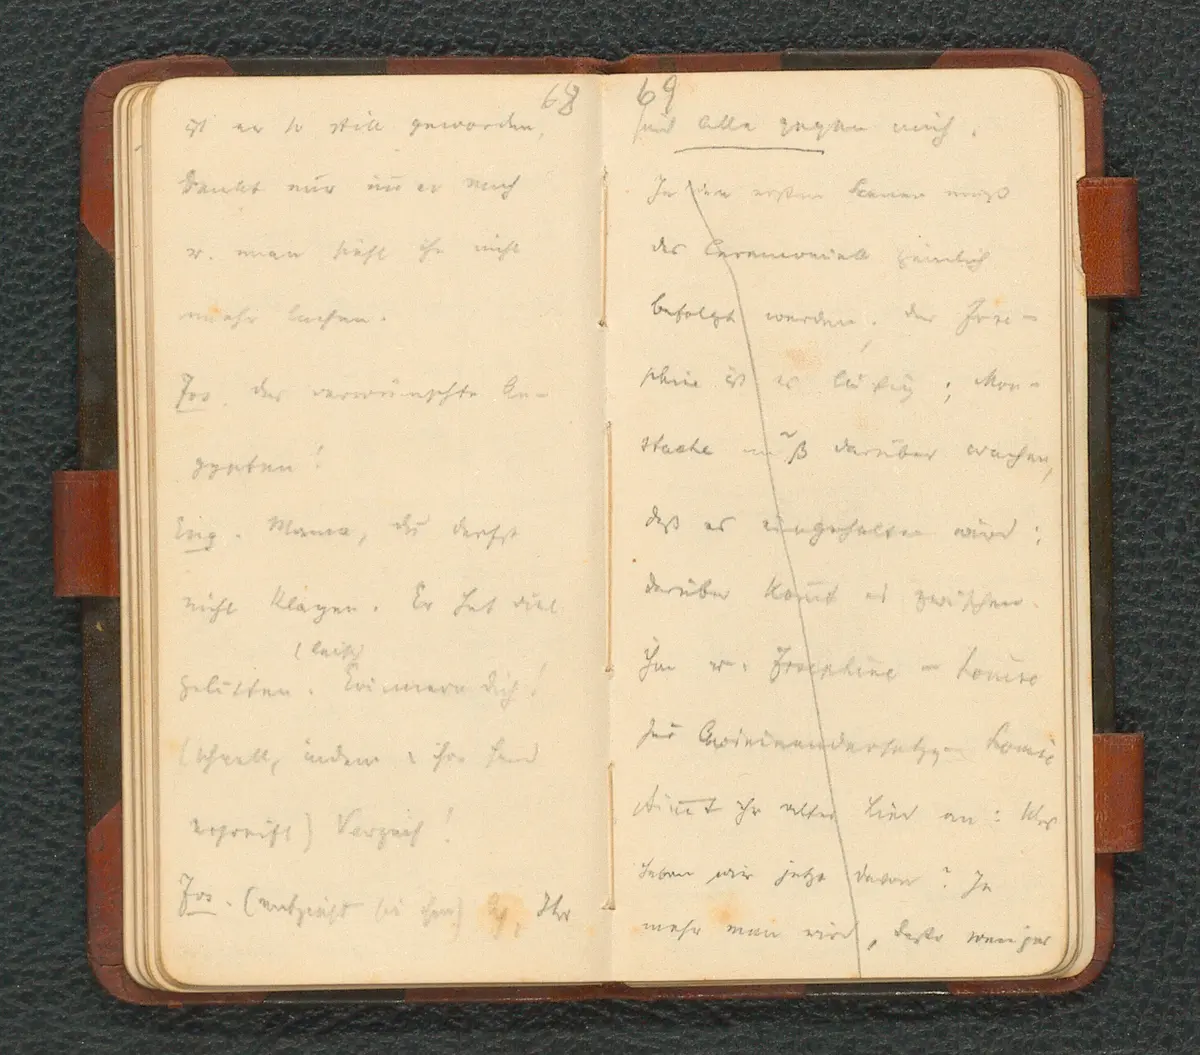 68
ist er so still geworden,
denkt nur immer nach
u. man sieht ihn nicht
mehr lachen.
Jos. Das verwünschte Ae-
gypten!
Eug. Mama, du darfst
nicht klagen. Er hat viel
(leise)
gelitten. Erinnere dich!
(schnell, indem er ihre Hand
ergreift) Verzeih!
Jos. (entzieht sie ihm) Ihr
69
seid Alle gegen mich.
In den ersten Scenen muß
das Ceremoniell peinlich
befolgt werden, der Jose-
phine ist es lästig;
muß darüber wachen,
daß es eingehalten wird;
darüber kommt es zwischen
ihm u. Josephine – Louise
zur Auseinandersetzung. Louise
stimmt ihr altes Lied an: Was
haben wir jetzt davon? Je
mehr man wird, desto weniger